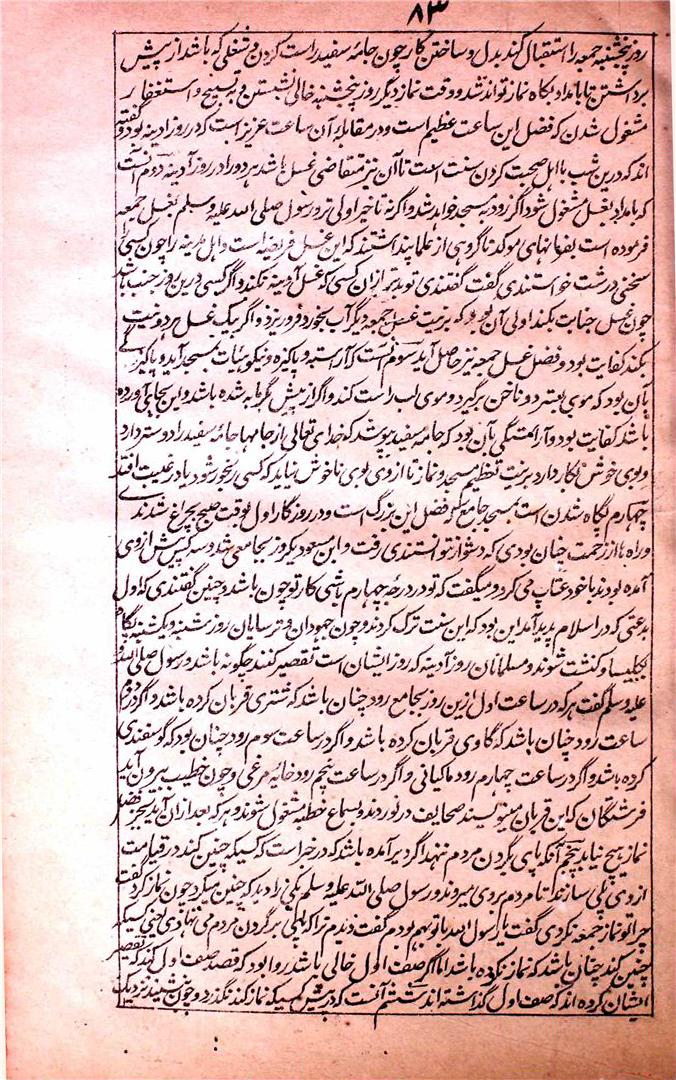 ۸۳
روز پنجشنبه جمعه را استقبال کند بدل و ساختن کار چون جامهٔ سفید راست کردن و شغلی که باشد از پیش
برداشتن تا بامداد بگاه نماز تواند شد و وقت نماز دیگر روز پنجشنبه خالی نشستن و به تسبیح و استغفار
مشغول شدن که فضل این ساعت عظیم است و در مقابلهٔ آن ساعت عزیز است که در روز آدینه بود و گفته
اند که درین شب با اهل صحبت کردن سنت است تا آن نیز متقاضی غسل باشد هر دو را در روز آدینه دوم آنست
که بامداد بغسل مشغول شود اگر زود به مسجد خواهد شد و اگر نه تاخیر اولی تر و رسول صلی الله علیه وسلم بغسل جمعه
فرموده است بفرمانهای موکد تا گروهی از علما پنداشتند که این غسل فریضه است و اهل مدینه را چون کسی را
سخنی درشت خواستندی گفت گفتندی تو بدتر ازان کسی که غسل آدینه نکند و اگر کسی درین روز جنب باشد
چون غسل جنابت بکند اولی آن بود که بر نیت غسل جمعه دیگر آب بخورد فرو ریزد و اگر بیک غسل هر دو نیت
بکند کفایت بود و فضل غسل جمعه نیز حاصل آید سوم آنست که آراسته و پاکیزه و نیکو هیئات بمسجد آید و پاکیزگی
بآن بود که موی بسترد و ناخن برگیرد و موی لب راست کند و اگر از پیش گرمابه شده باشد و این بجای آورده
باشد کفایت بود و آراستگی بآن بود که جامه سفید بپوشد که خدای تعالی از جامها جامهٔ سفید را دوستر دارد
و بوی خوش بکار دارد بر نیت تعظیم مسجد و نماز تا از وی بوی ناخوش نیاید که کسی رنجور شود یا در غیبت افتد
چهارم پگاه شدن است بمسجد جامع که فضل این بزرگ است و در روزگار اول بوقت صبح بچراغ شدندی
و راه ها از زحمت چنان بودی که دشوار توانستندی رفت و ابن مسعود یکروز بجامع شد و سه کس پیش از وی
آمده بودند با خود عتاب می کرد و میگفت که تو در درجهٔ چهارم باشی کار تو چون باشد و چنین گفتندی که اول
بدعتی که در اسلام پدید آمد این بود که این سنت ترک کردند و چون جهودان و ترسایان روز شنبه و یکشنبه پگاه
بکلیسا و کنشت شوند و مسلمانان روز آدینه که روز ایشان است تقصیر کنند چگونه باشد و رسول صلی الله
علیه وسلم گفت هر که در ساعت اول ازین روز بجامع رود چنان باشد که شتری قربان کرده باشد و اگر در دوم
ساعت رود چنان باشد که گاوی قربان کرده باشد و اگر در ساعت سوم رود چنان بود که گوسفندی
کرده باشد و اگر در ساعت چهارم رود ماکیانی و اگر در ساعت پنجم رود خایهٔ مرغی و چون خطیب بیرون آید
فرشتگان که این قربان مینویسند صحایف در نوردند و بسماع خطبه مشغول شوند و هر که بعد ازان آید بجز فضل
نماز هیچ نیابد پنجم آنکه پای بگردن مردم ننهد اگر دیر آمده باشد که در خبر است که کسیکه چنین کند در قیامت
از وی پلی سازند تا مردم بر وی میروند و رسول صلی الله علیه وسلم یکی را دید که چنین میکرد چون نماز کرد گفت
چرا تو نماز جمعه نکردی گفت یا رسول الله با تو بهم بودم گفت دیدم ترا که پای بر گردن مردم می نهادی یعنی کسیکه
چنین کند چنان باشد که نماز نکرده باشد اما اگر صف اول خالی باشد روا بود که قصد صف اول کند که تقصیر
ایشان کرده اند که صف اول گذاشته اند ششم آنست که در پیش کسیکه نماز کند نگذرد و چون بنشیند نزدیک